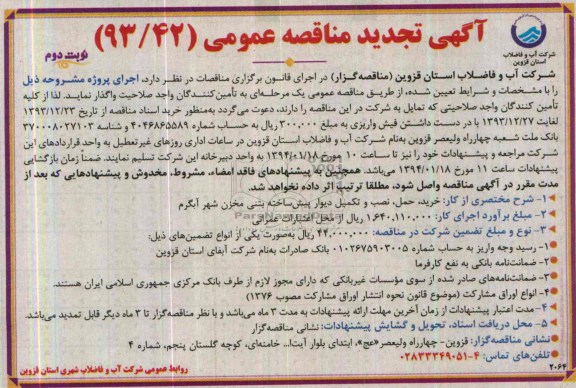 آگهی تجدید مناقصه عمومی (۹۳/۴۲)
نوبت دوم
شرکت آب و فاضلاب
استان قزوین
شرکت آب و فاضلاب استان قزوین (مناقصه‌گزار) در اجرای قانون برگزاری مناقصات در نظر دارد، اجرای پروژه مشروحه ذیل
را با مشخصات و شرایط تعیین شده، از طریق مناقصه عمومی یک مرحله‌ای به تأمین‌کنندگان واجد صلاحیت واگذار نمایند. لذا از کلیه
تأمین کنندگان واجد صلاحیتی که تمایل به شرکت در این مناقصه را دارند، دعوت می‌گردد به‌منظور خرید اسناد مناقصه از تاریخ ۱۳۹۳/۱۲/۲۳
لغایت ۱۳۹۳/۱۲/۲۷ با در دست داشتن فیش واریزی به مبلغ ۳۰۰,۰۰۰ ریال به حساب شماره ۴۰۴۶۸۶۵۵۸۹ و شناسه ۳۷۰۰۰۸۰۲۷۱۰۳
بانک ملت شعبه چهارراه ولیعصر قزوین به‌نام شرکت آب و فاضلاب استان قزوین در ساعات اداری روزهای غیرتعطیل به واحد قراردادهای این
شرکت مراجعه و پیشنهادات خود را نیز تا ساعت ۱۰ مورخ ۱۳۹۴/۰۱/۱۸ به واحد دبیرخانه این شرکت تسلیم نمایند. ضمناً زمان بازگشایی
پیشنهادات ساعت ۱۱ مورخ ۱۳۹۴/۰۱/۱۸ می‌باشد. همچنین به پیشنهادهای فاقد امضاء، مشروط، مخدوش و پیشنهادهایی که بعد از
مدت مقرر در آگهی مناقصه واصل شود، مطلقا ترتیب اثر داده نخواهد شد.
۱– شرح مختصری از کار: خرید، حمل، نصب و تکمیل دیوار پیش‌ساخته بتنی مخزن شهر آبگرم
۲– مبلغ برآورد اجرای کار: ۱,۶۴۰,۱۱۰,۰۰۰ ریال از محل اعتبارات عمرانی
۳– نوع و مبلغ تضمین شرکت در مناقصه: ۴۴,۰۰۰,۰۰۰ ریال به‌صورت یکی از انواع تضمین‌های ذیل:
۱– رسید وجه واریز به حساب شماره ۰۱۰۲۶۷۵۹۰۳۰۰۵ بانک صادرات به‌نام شرکت آبفای استان قزوین
۲– ضمانت‌نامه بانکی به نفع کارفرما
۳– ضمانت‌نامه‌های صادر شده از سوی مؤسسات غیربانکی که دارای مجوز لازم از طرف بانک مرکزی جمهوری اسلامی ایران هستند.
۴– انواع اوراق مشارکت (موضوع قانون نحوه انتشار اوراق مشارکت مصوب ۱۳۷۶)
۴– مدت اعتبار پیشنهادات از زمان آخرین مهلت ارائه پیشنهادات به مدت ۳ ماه می‌باشد و با نظر مناقصه‌گزار تا ۳ ماه دیگر قابل تمدید می‌باشد.
۵– محل دریافت اسناد، تحویل و گشایش پیشنهادات: نشانی مناقصه‌گزار
نشانی مناقصه‌گزار: قزوین- چهارراه ولیعصر«عج»، ابتدای بلوار آیت‌ا.. خامنه‌ای، کوچه گلستان پنجم، شماره ۴
تلفن‌های تماس: ۴-۰۲۸۳۳۳۴۹۰۵۱
روابط عمومی شرکت آب و فاضلاب شهری استان قزوین
۲۰۶۴